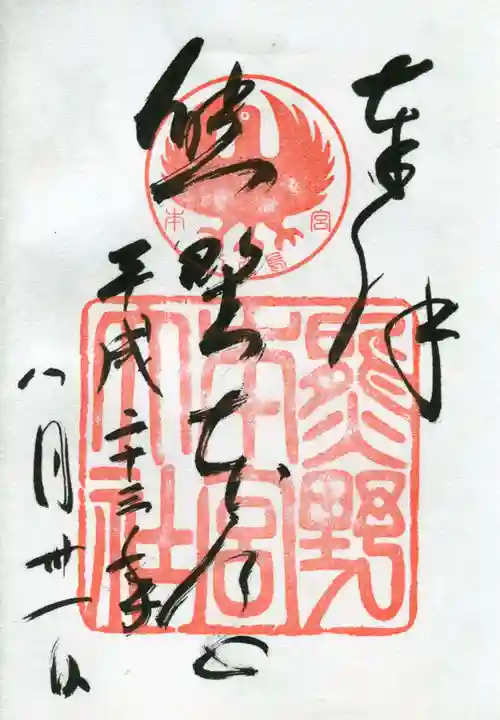 奉拝
熊野本宮
平成二十三年
八月卅一日
本宮
熊野
本宮
大社